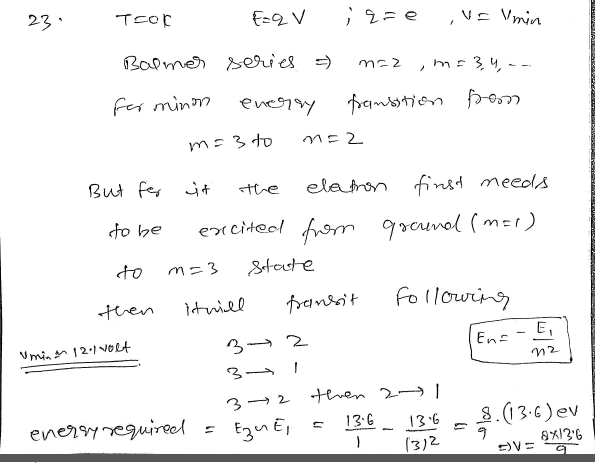 23. T=0K E=qV ; q=e , V=Vmin
Balmer series ⇒ n=2 , m=3,4,---
For minm energy transition from
m=3 to n=2
But for it the elatron first needs
to be excited from ground (n=1)
to n=3 state
then it will transit following
3→2
En = - E1/n2
Vmin ≈ 12.1 volt
3→1
3→2 then 2→1
energy required = E3~E1 = 13.6/1 - 13.6/(3)2 = 8/9 .(13.6) eV
⇒V= 8x13.6/9